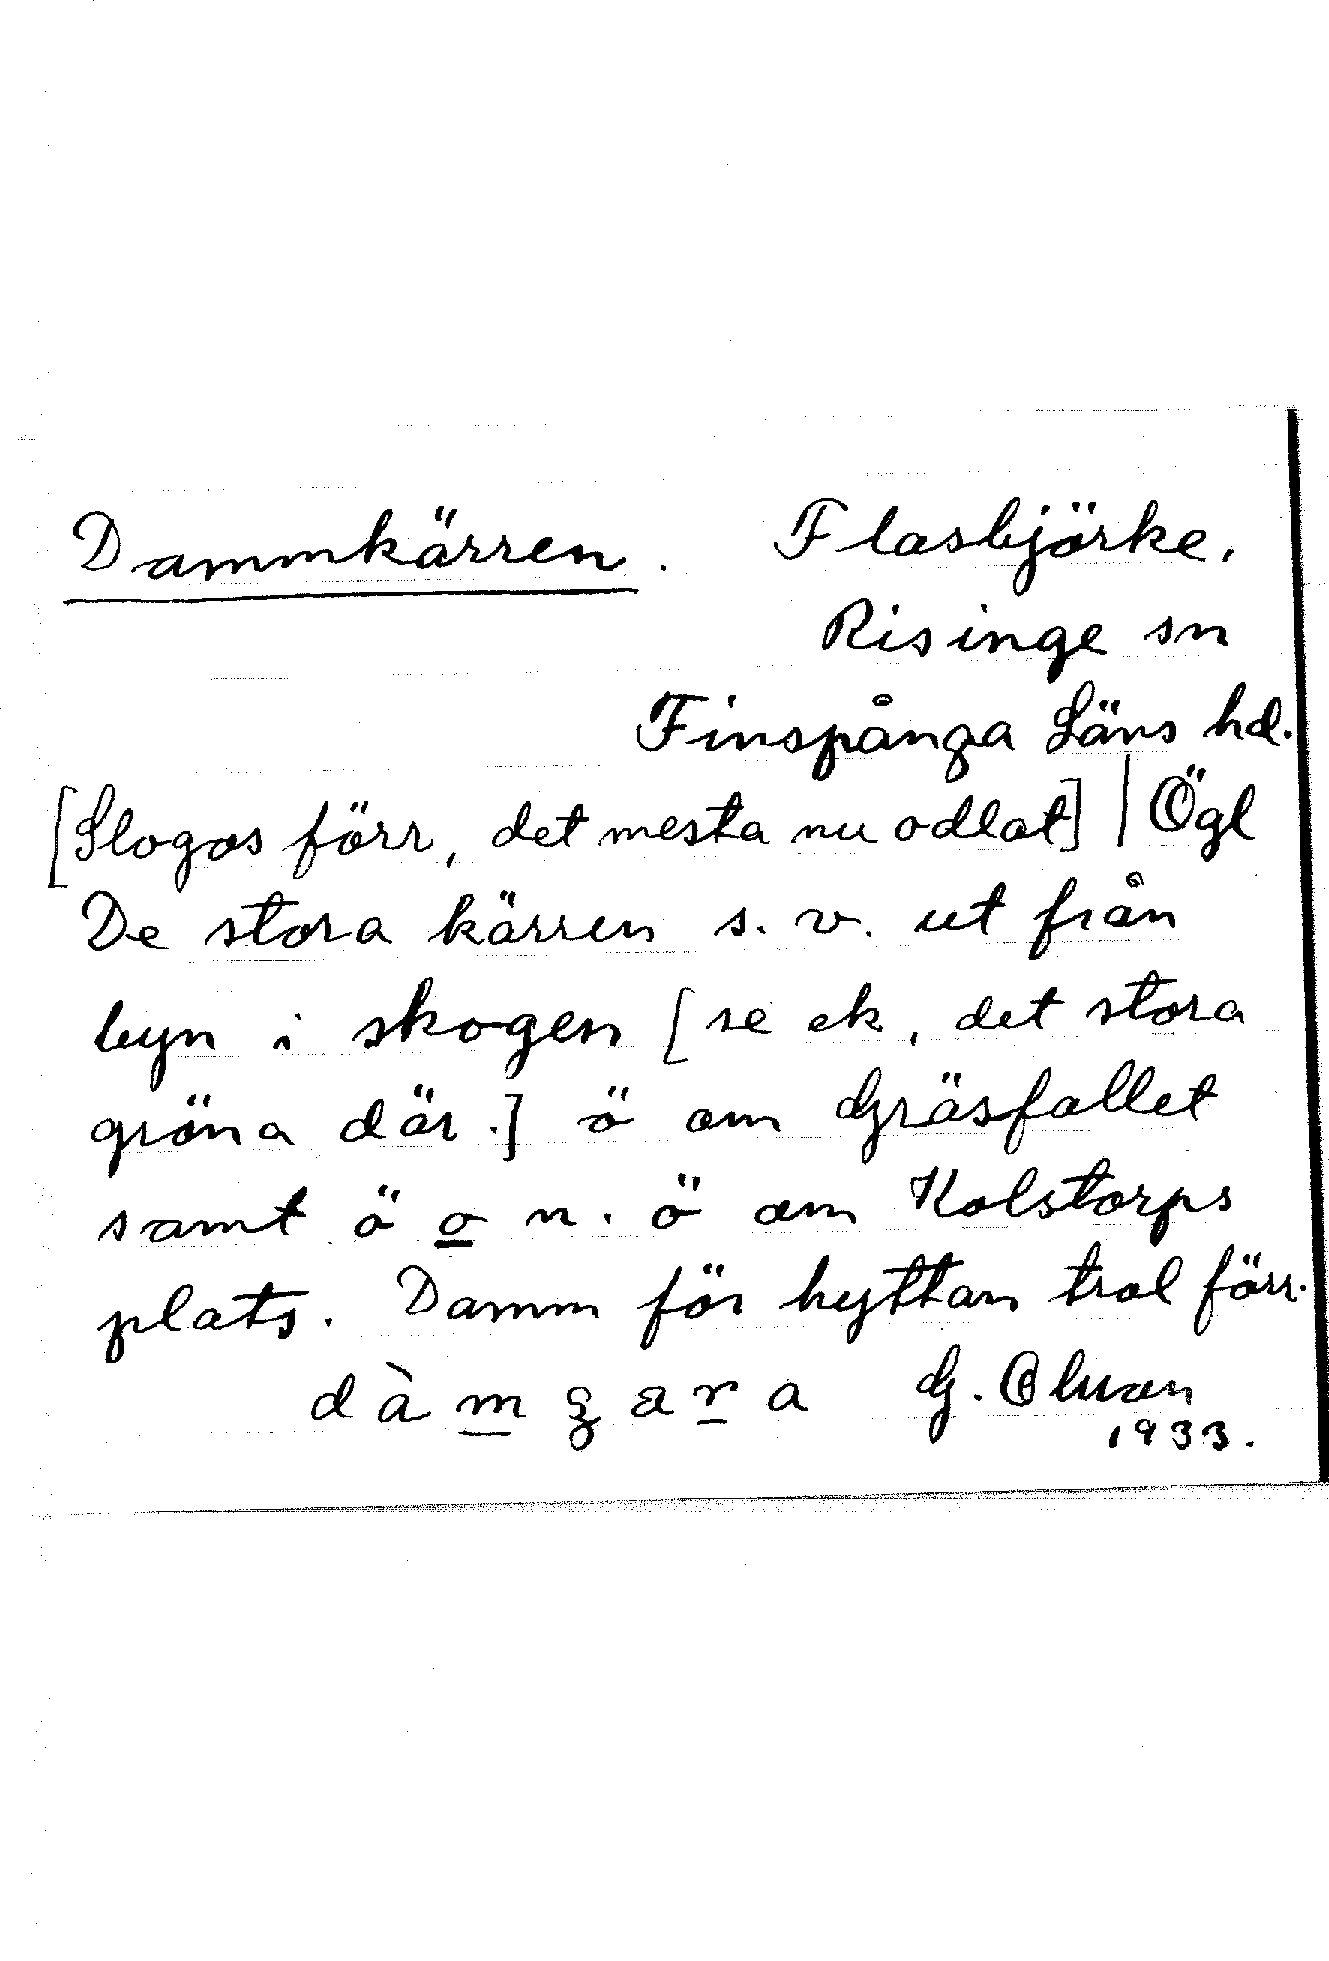 Dammkärren. Flasbjörke,
Risinge sn
Finspånga Läns hd.
[Slogos förr, det mesta nu odlat] | Ögl
De stora kärren s. v. ut från
byn i skogen [se ek, det stora
gröna där.] ö om Gräsfallet
samt ö o n. ö om Kolstorps
plats. Damm för hyttan trol förr.
G.
1933.